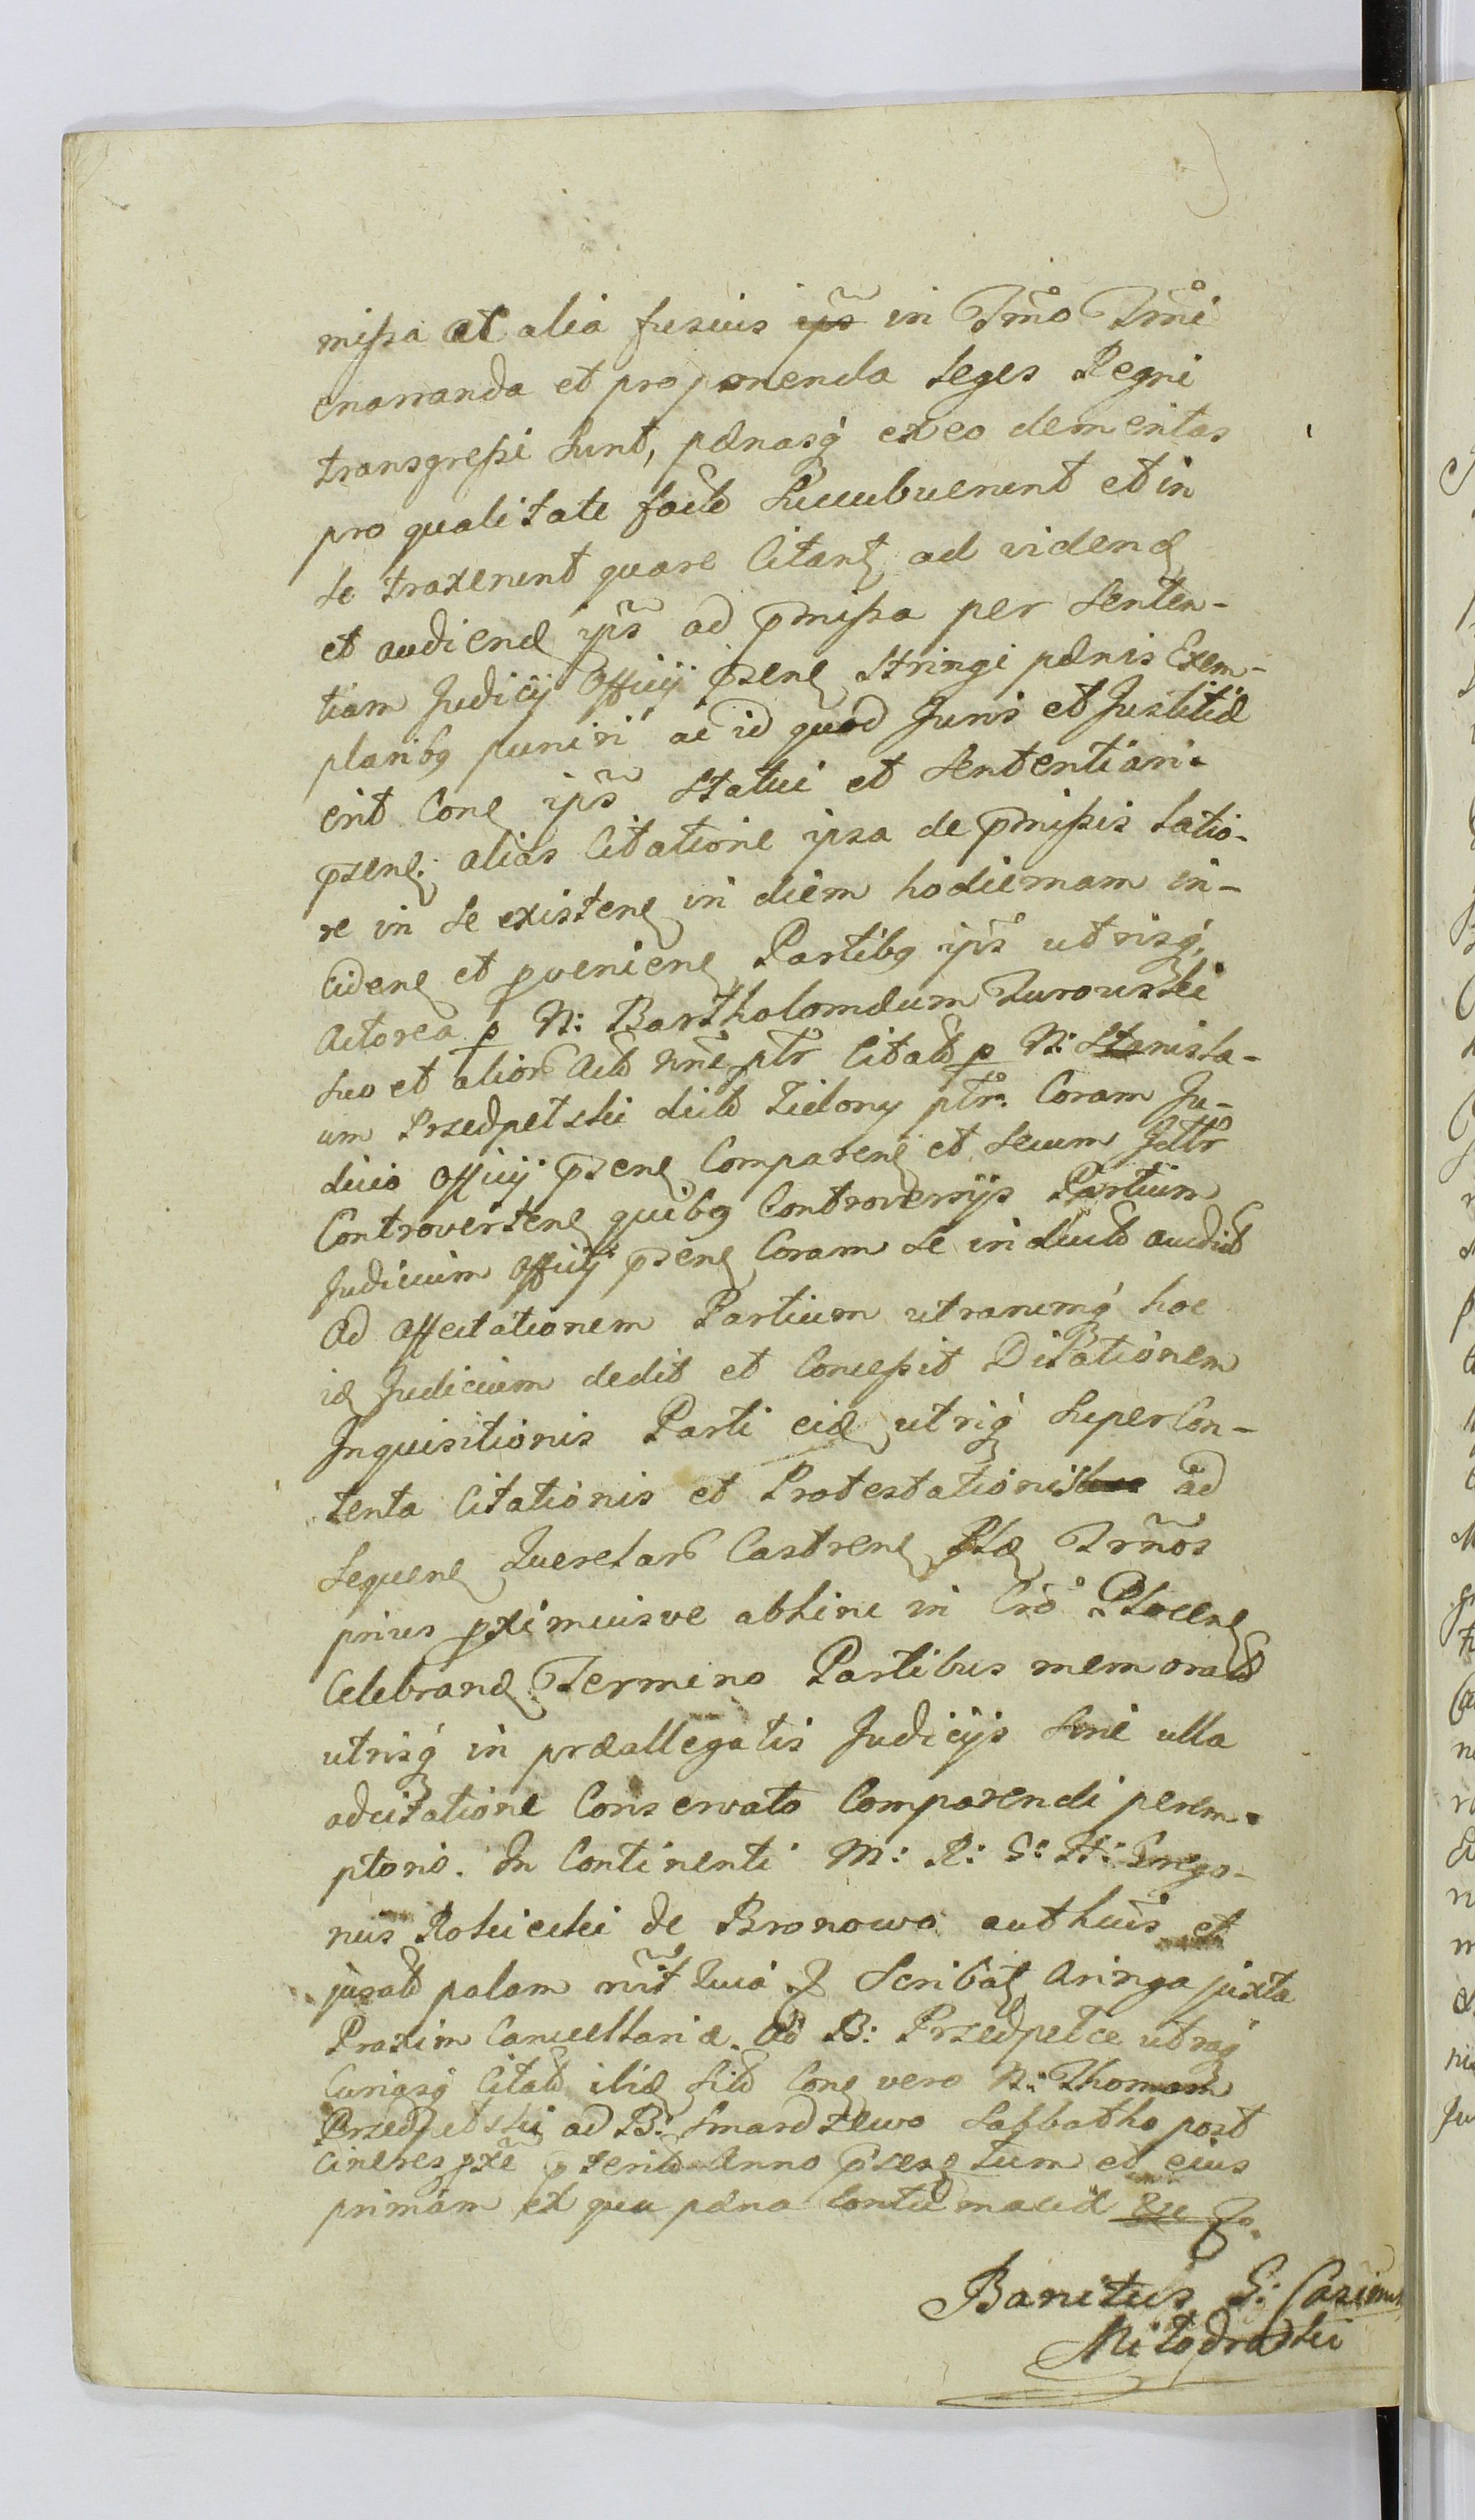 mißa et alia fusius ips̃ in Tm̃o Tm̃i
enarranda et proponenda Leges Regni
transgreßi sunt, pænasq́ ex eo demeritas
pro qualitate facti succubuerunt et in
se traxerunt quare Citant ad videnđ
et audienđ ips̃ ad p̃mißa per Senten-
tiam Judicÿ Officÿ p̃sen Stringi pænis Exem-
plaribꝫ puniri ac id quod Juris et Justitiæ
erit Conc ips̃ Statui et Sententiari.
p̃sen: alias Citatione ipsa de p̃mißis latio-
re in se existen in diem hodiernam in-
ciden et p̱venien Partibꝫ ips̃ utrisq́
Actorea p̱ N: Bartholomæum Turouski
suo et alior Act nn̄e ptr̃ Citat p̱ N: Stanisla-
um Przedpełski dict Zielony ptr̃. Coram Ju-
dicio Officÿ p̃sen Comparen et secum Jttr̃
Controverten quibꝫ Controversÿs Partium
Judicium Officÿ p̃sen Coram se induct audit
Ad affectationem Partium utrarumq́ hoc
id Judicium dedit et Conceßit Dilationem
Inquisitionis Parti eid utriq́ super Con-
tenta Citationis et Protestationis ad
sequen Querelar Castren Tr̃nos
prius pximiusve abhinc in Crõ Plocen
Celebranđ Termino Partibus memorat
utrisq́ in præallegatis Judicÿs Sine ulla
adcitatione Conservato Comparendi perem-
ptorio. In Continenti M: R: G: H: Grego-
rius Rościcki de Bronowo authus et
jurat palam rn̄it Quia Scribat Aringa juxta
Praxim Cancellariæ. Ad B: Przedpełce utraq́
Curiasq́ Citat ibid sit Conc vero N: Thomam
Przedpełski ad B: Smardzewo Sabbatho post
Cineres px̃e p̃terit Anno p̃sen tum et eius
primam ex qua pæna contumaciæ
Banitus G: Casimir
Miłodrowski